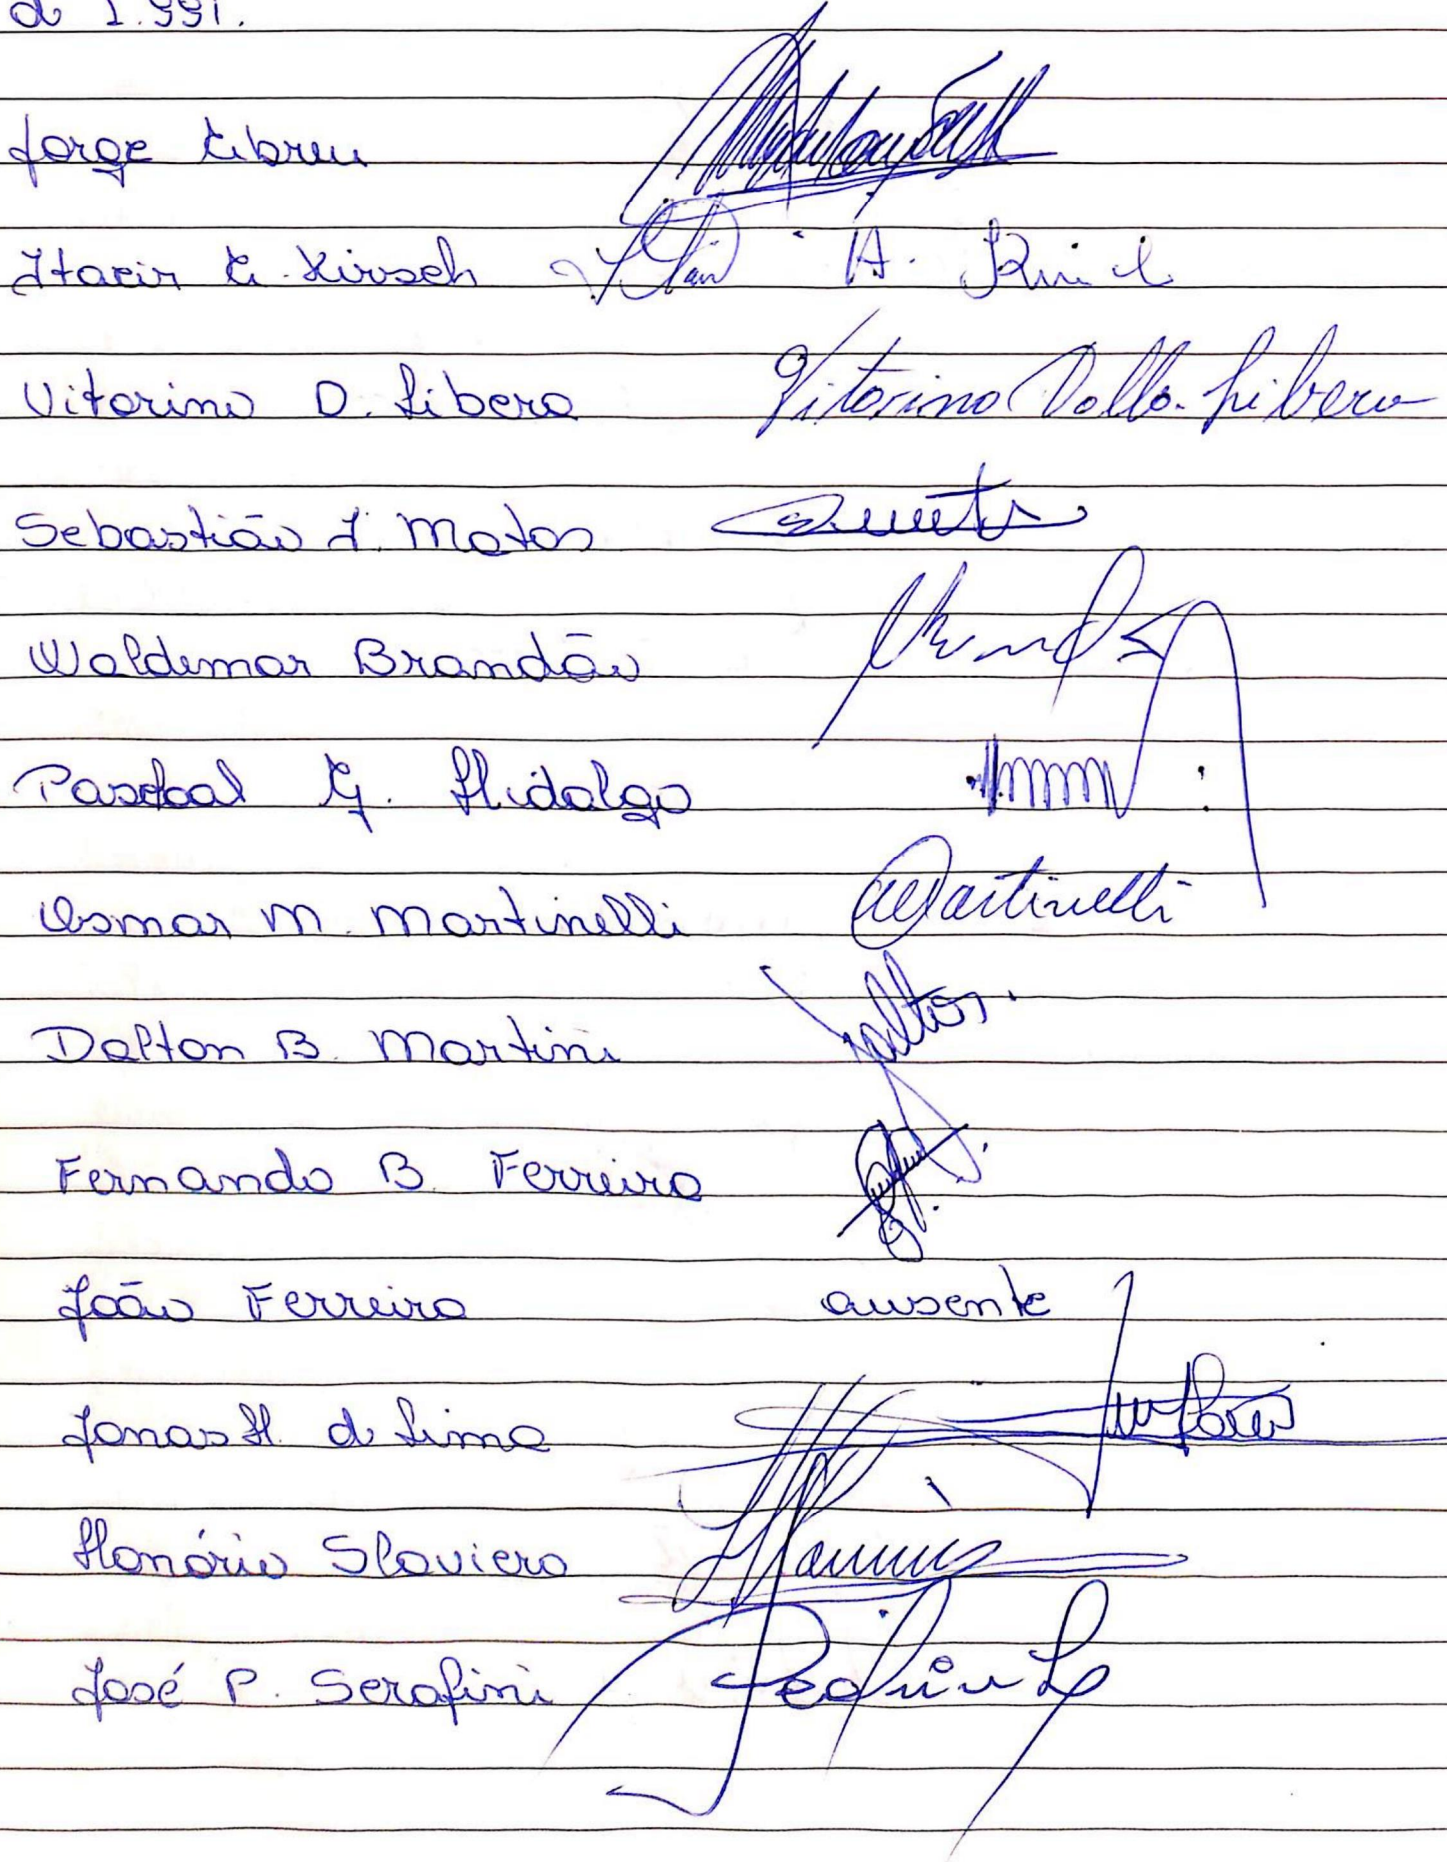 de 1.991.
Jorge Abreu
Itacir A. Kirsch
Vitorino D. Libera Vitorino Dalla Libera
Sebastião J. Matos
Waldemar Brandão
Pascoal G. Hidalgo
Osmar M. Martinelli Martinelli
Dalton B. Martini Dalton.
Fernando B. Ferreira
João Ferreira ausente
Jonas H. de Lima
Honório Slaviero
José P. Serafini